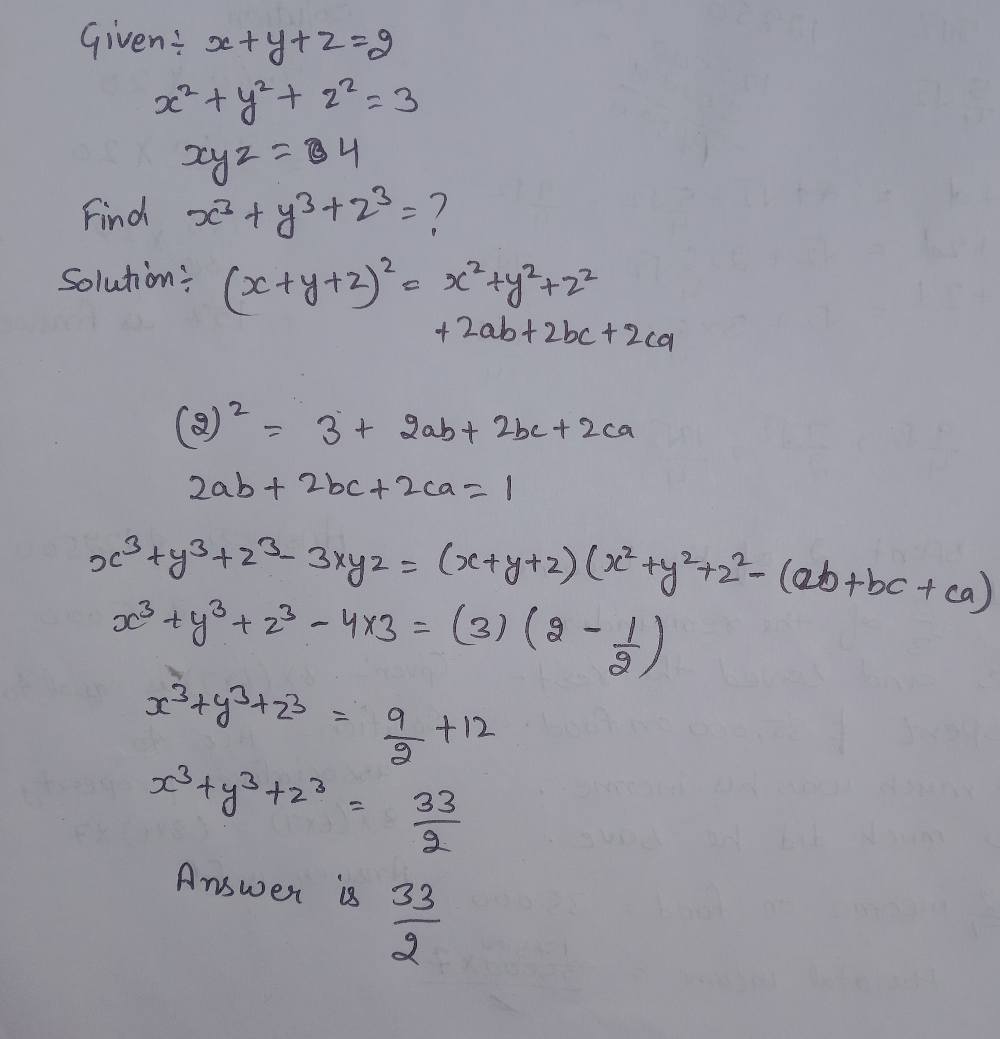 Given:- x+y+z=2
x²+y²+z²=3
xyz=4
Find x³+y³+z³=?
Solution:- (x+y+z)²= x²+y²+z²
+2ab+2bc+2ca
(2)² = 3+ 2ab+2bc+2ca
2ab+2bc+2ca=1
x³+y³+z³-3xyz=(x+y+z)(x²+y²+z²-(ab+bc+ca)
x³+y³+z³-4×3=(3)(2-1/2)
x³+y³+z³ = 9/2 +12
x³+y³+z³ = 33/2
Answer is 33/2